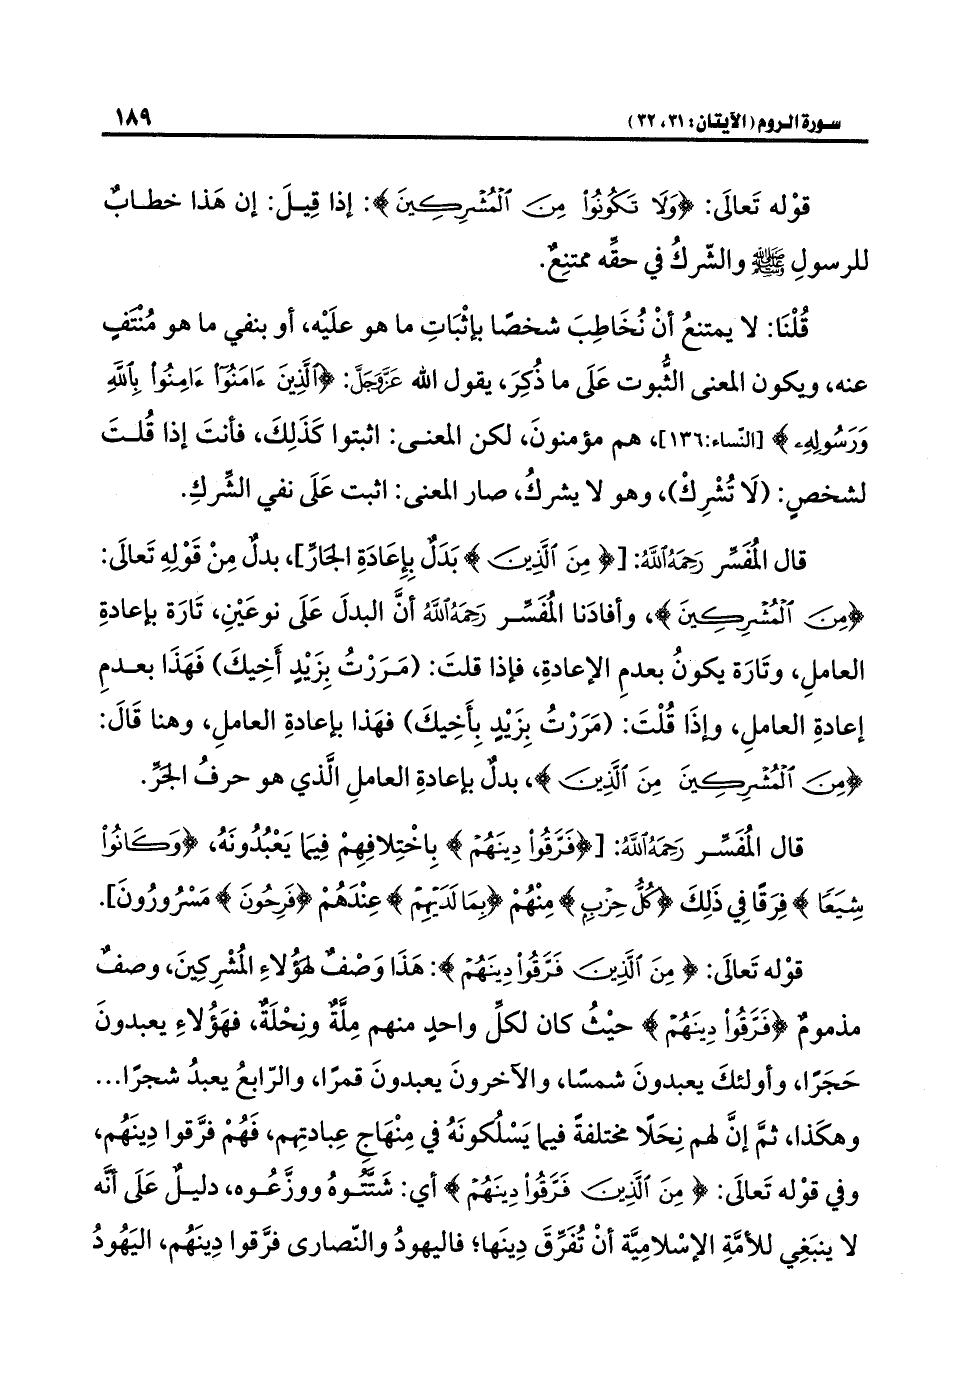 سورة الروم (الآيتان: ٣١، ٣٢)
١٨٩
قوْله تَعالَى: ﴿وَلَا تَكُونُوا۟ مِنَ ٱلْمُشْرِكِينَ﴾: إذا قِيلَ: إن هَذا خطابٌ
للرسولِ ﷺ والشّركُ في حقِّه ممتنِعٌ.
قُلْنَا: لا يمتنعُ أنْ نُخَاطِبَ شخصًا بإثْبَاتِ ما هو علَيْه، أو بنفي ما هو مُنْتَفٍ
عنه، ويكون المعنى الثُّبوت عَلَى ما ذُكِرَ، يقول الله عَزَّوَجَلَّ: ﴿ٱلَّذِينَ ءَامَنُوٓا۟ ءَامِنُوا۟ بِٱللَّهِ
وَرَسُولِهِۦ﴾ [النّساء:١٣٦]، هم مؤمنونَ، لكن المعنى: اثبتوا كَذَلِكَ، فأنتَ إذا قُلتَ
لشخصٍ: (لَا تُشْرِكْ)، وهو لا يشركُ، صار المعنى: اثبت عَلَى نفي الشِّركِ.
قال المُفَسِّر رَحِمَهُ ٱللَّهُ: [﴿مِنَ ٱلَّذِينَ﴾ بَدَلٌ بِإِعَادَةِ الجَارِّ]، بدلٌ مِنْ قَوْلِهِ تَعالَى:
﴿مِنَ ٱلْمُشْرِكِينَ﴾، وأفادَنا المُفَسِّر رَحِمَهُ ٱللَّهُ أنَّ البدلَ عَلَى نوعَيْنِ، تَارَة بإعادةِ
العاملِ، وتَارَة يكونُ بعدمِ الإعادةِ، فإذا قلتَ: (مَرَرْتُ بِزَيْدٍ أَخِيكَ) فَهَذَا بعدمِ
إعادةِ العاملِ، وإذَا قُلْتَ: (مَرَرْتُ بِزَيْدٍ بِأَخِيكَ) فهَذا بإعادةِ العاملِ، وهنا قَالَ:
﴿مِنَ ٱلْمُشْرِكِينَ مِنَ ٱلَّذِينَ﴾، بدلٌ بإعادةِ العاملِ الَّذي هو حرفُ الجَرِّ.
قال المُفَسِّر رَحِمَهُ ٱللَّهُ: [﴿فَرَّقُوا۟ دِينَهُمْ﴾ بِاخْتِلافِهِمْ فِيمَا يَعْبُدُونَهُ، ﴿وَكَانُوا۟
شِيَعًا﴾ فِرَقًا فِي ذَلِكَ ﴿كُلُّ حِزْبٍ﴾ مِنْهُمْ ﴿بِمَا لَدَيْهِمْ﴾ عِنْدَهُمْ ﴿فَرِحُونَ﴾ مَسْرُورُونَ].
قوْله تَعالَى: ﴿مِنَ ٱلَّذِينَ فَرَّقُوا۟ دِينَهُمْ﴾: هَذَا وَصْفٌ لهَؤُلاءِ المُشْرِكِينَ، وصفٌ
مذمومٌ ﴿فَرَّقُوا۟ دِينَهُمْ﴾ حيْثُ كان لكلِّ واحدٍ منهم مِلَّةٌ ونِحْلَةٌ، فهَؤُلاءِ يعبدونَ
حَجَرًا، وأولئكَ يعبدونَ شمسًا، والآخرونَ يعبدونَ قمرًا، والرّابعُ يعبدُ شجرًا...
وهكذا، ثمَّ إنَّ لهم نِحَلًا مختلفةً فيما يَسْلُكونَهُ في مِنْهاجِ عِبادتِهِم، فَهُمْ فرَّقوا دِينَهُم،
وفي قوْله تَعالَى: ﴿مِنَ ٱلَّذِينَ فَرَّقُوا۟ دِينَهُمْ﴾ أي: شَتَّتُوهُ ووزَّعُوه، دليلٌ عَلَى أنَّه
لا ينبَغِي للأمَّةِ الإسْلاميَّة أنْ تُفَرِّقَ دِينَها؛ فاليهودُ والنّصارى فرَّقوا دِينَهُم، اليَهُودُ